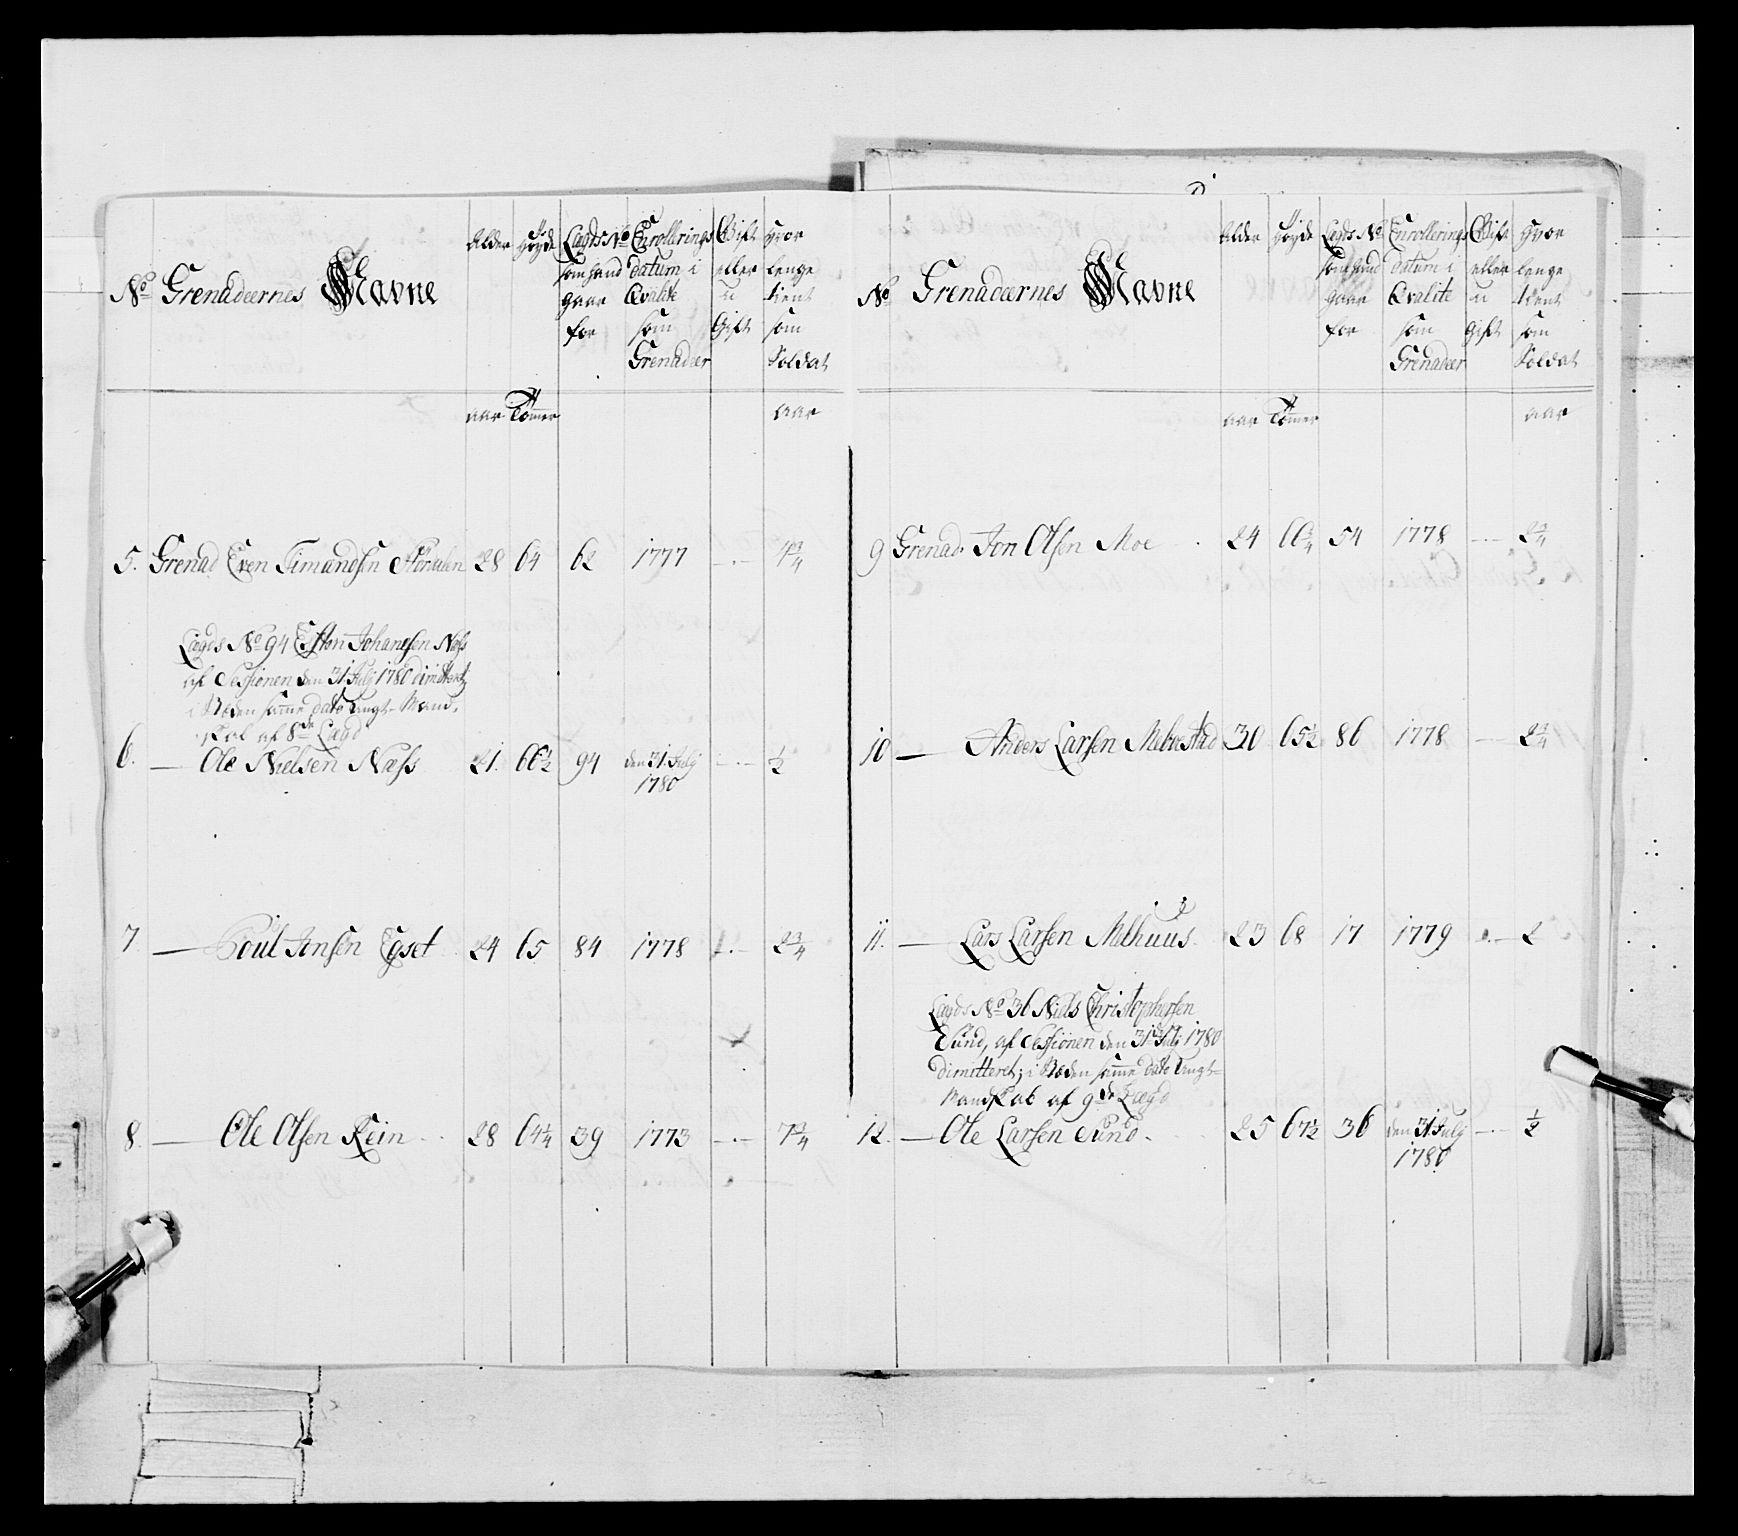 No Grenadeernes Navne
Alder
Høyde
Lægds No som hand gaar for
Enrollerings datum i Qvalite som Grenadeer
Gift eller u Gift
Hvor lenge tient som Soldat
aar Tommer aar
5. Grenad Even Simandsen Størdalen 28 64 62 1777 -.- 4 3/4
Lægds No 94 Johansen Næss
af Sessionen den 31 Julj 1780 dimitteret,
i Steden samme dato Mand-
skab af 8de Lægd
6. — Ole Nielsen Næss 21. 66 1/2 94 den 31 Julj -.- 1/2
1780
7. — Poul Jonsen Egset 24 65 84 1778 -.- 2 3/4
8. — Ole Olsen Rein 28 64 1/4 39 1773 -.- 7 3/4
No Grenadeernes Navne
Alder
Høyde
Lægds No som hand gaar for
Enrollerings datum i Qvalite som Grenadeer
Gift eller u Gift
Hvor lenge tient som Soldat
aar Tommer aar
9 Grenad. Jon Olsen Moe 24 66 3/4 54 1778 -.- 2 3/4
10 — Anders Larsen Meboestad 30 65 1/2 86 1778 -.- 2 3/4
11. — Lars Larsen Melhuus 23 68 17 1779 -.- 2
Lægds No 36 Niels Christophersen
Sund, af Sessionen den 31 Julj 1780
dimitteret; i Steden samme dato
Mandskab af 9de Lægd
12. — Ole Larsen Sund. 25 67 1/2 36 den 31 Julj -.- 1/2
1780